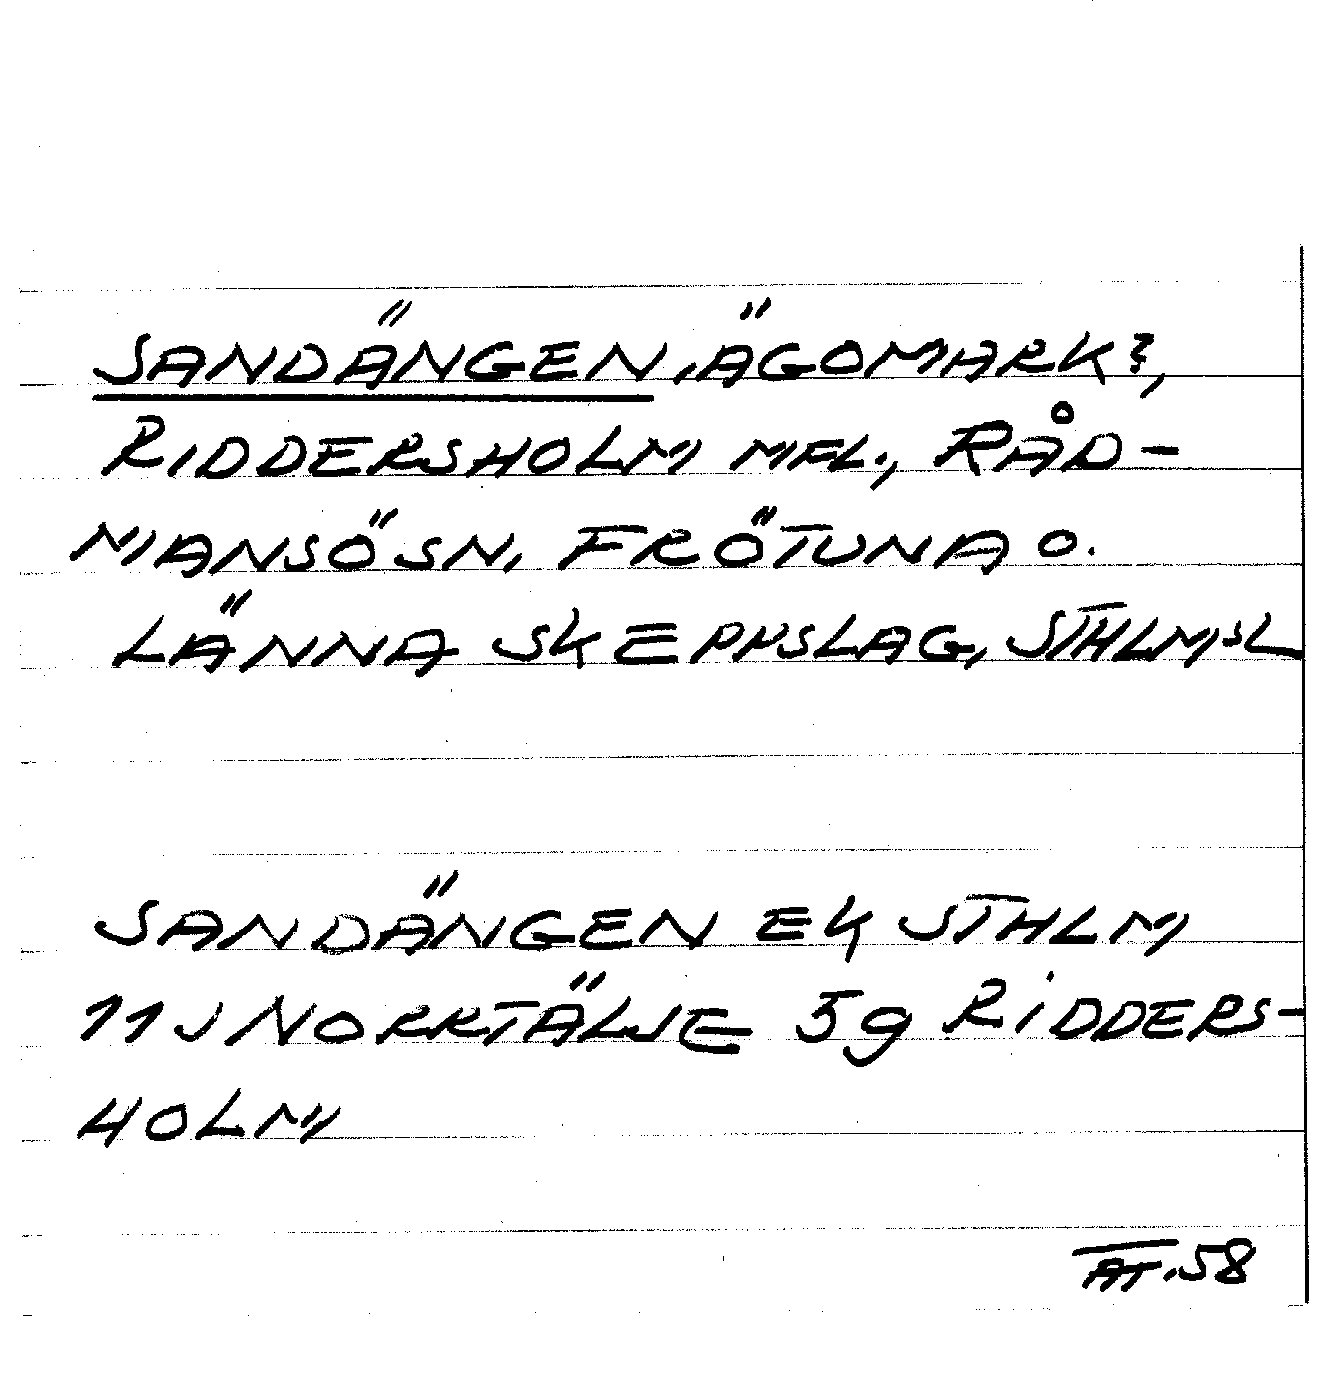 SANDÄNGEN, ÄGOMARK?,
RIDDERSHOLM MFL., RÅD-
MANSÖ SN, FRÖTUNA O.
LÄNNA SKEPPSLAG, STHLMSL
SANDÄNGEN EK STHLM
11J NORRTÄLJE 5g RIDDERS-
HOLM
AT.58